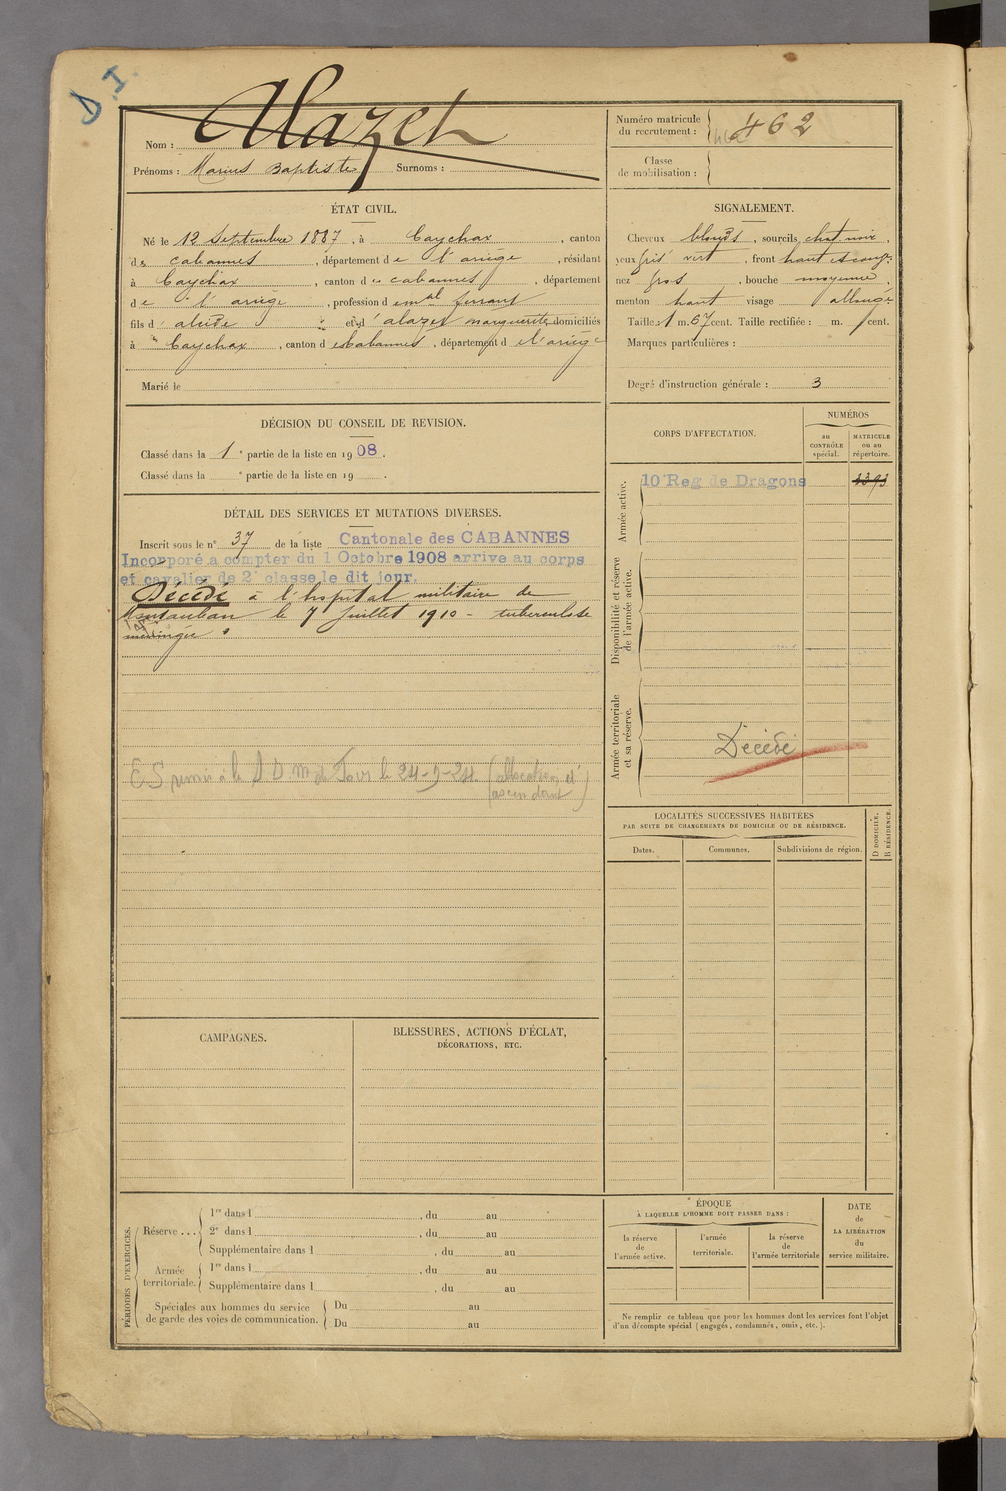 D.I.
Nom : Alazet
Prénoms : Marius Baptiste Surnoms :
Numéro matricule
du recrutement : 462
Classe
de mobilisation :
ÉTAT CIVIL.
Né le 12 Septembre 1887, à Caychax, canton
de Cabannes, département de l'ariège, résidant
à Caychax, canton de Cabannes, département
de l'ariège, profession d
fils d et d'alazet marguerite domiciliés
à Caychax, canton des Cabannes, département de l'ariège
Marié le
SIGNALEMENT.
Cheveux blonds, sourcils chat noir,
yeux gris vert, front haut
nez gros, bouche moyenne,
menton haut visage allongé
Taille : 1 m. 67 cent. Taille rectifiée : m. cent.
Marques particulières :
Degré d'instruction générale : 3
DÉCISION DU CONSEIL DE REVISION.
Classé dans la 1e partie de la liste en 1908.
Classé dans la e partie de la liste en 19 .
DÉTAIL DES SERVICES ET MUTATIONS DIVERSES.
Inscrit sous le n° 37 de la liste Cantonale des CABANNES
Incorporé a compter du 1 Octobre 1908 arrive au corps
et cavalier de 2e classe le dit jour.
Décédé à l'hopital militaire de
Montauban le 7 Juillet 1910 - tuberculose
méningée.
ES remis à le 24-9-24 (allocation d'
ascendant)
CORPS D'AFFECTATION.
NUMÉROS
au
CONTRÔLE
spécial.
MATRICULE
ou au
répertoire.
Armée active.
10e Reg de Dragons 1393
Disponibilité et réserve
de l'armée active.
Armée territoriale
et sa réserve.
Décédé
LOCALITÉS SUCCESSIVES HABITÉES
PAR SUITE DE CHANGEMENTS DE DOMICILE OU DE RÉSIDENCE.
Dates.
Communes.
Subdivisions de région.
D DOMICILE.
R RÉSIDENCE.
CAMPAGNES.
BLESSURES, ACTIONS D'ÉCLAT,
DÉCORATIONS, ETC.
PÉRIODES D'EXERCICES.
Réserve ...
1re dans l , du au
2e dans l , du au
Supplémentaire dans l , du au
Armée
territoriale.
1re dans l , du au
Supplémentaire dans l , du au
Spéciales aux hommes du service
de garde des voies de communication.
Du au
Du au
ÉPOQUE
À LAQUELLE L'HOMME DOIT PASSER DANS :
la réserve
de
l'armée active.
l'armée
territoriale.
la réserve
de
l'armée territoriale
DATE
de
LA LIBÉRATION
du
service militaire.
Ne remplir ce tableau que pour les hommes dont les services font l'objet
d'un décompte spécial (engagés, condamnés, omis, etc.).